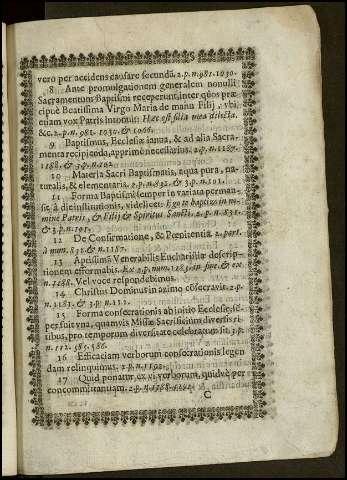 5
vero per accidens causare secundã. 2.p.n.981.1030.
8 Ante promulgationem generalem nonulli
Sacramentum Baptismi receperunt, inter quos præ
cipuè Beatissima Virgo Maria de manu Filij, vbi,
etiam vox Patris intonuit: Hæc est filia mea dilecta.
&c. 2.p.n.981. 1030. & 1066.
9 Baptismus, Ecclesiæ ianua, & ad alia Sacra-
menta recipienda, apprimè necessarius. 2.p.n.
1188. & 3.p.n.
10 Materia Sacri Baptismatis, aqua pura, na-
turalis, & elementaris. 2.p.n.832. & 3.p.n.101.
11 Forma Baptismi semper in variata permans-
sit, à die institutionis, videlicet: Ego te baptizo in no-
mine Patris, & Filij & Spiritus Sancti. 2.p.n.831.
& 3.p.n.101.
12 De Confirmatione, & Pœnitentia 2. part.
à num. 831. & n.1187.
13 Aptissimã Venerabilis Eucharistiæ descrip-
tionem efformabis. Ex 2.p.num.1183. in fine, & ex
n.1188. Vel voce respondebimus.
14 Christus Dominus in azimo cõsecravit. 2.p.
n.1181. & 3.p.n.111.
15 Forma consecrationis ab initio Ecclesiæ, sẽ-
per fuit vna, quamvis Missæ Sacrificium diversis ri-
tibus, pro temporum diversitate celebratum sit. 3.p.
n.112. 585. 586.
16 Efficaciam verborum consecrationis legen
dam relinquimus. 2.p.n.1192.
17 Quid ponatur ex vi verborum, quidvè per
concommitantiam. 2.p.n.
C